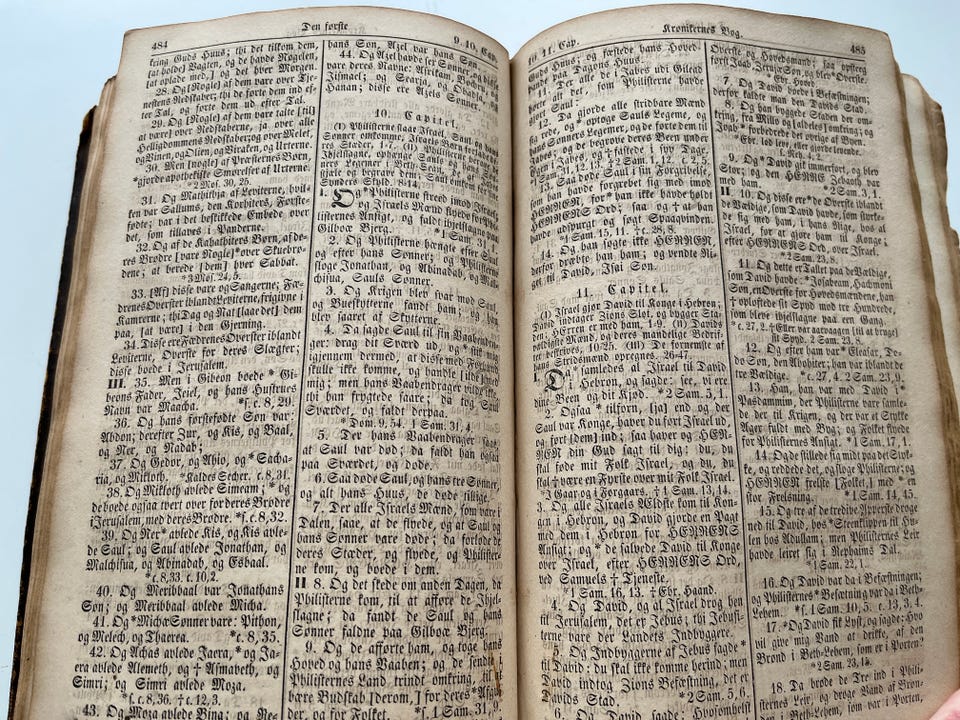 484
Den første
9. 10. Cap.
kring Guds Huus; thi det tilkom dem,
[at holde] Vagten, og de havde Nøgelen,
[at oplade med,] og det hver Morgen.
28. Og [Nogle] af dem vare over Tje-
nestens Redskaber; thi de førte dem ind ef-
ter Tal, og førte dem ud efter Tal.
29. Og [Nogle] af dem vare talte [til]
at være] over Redskaberne, ja over alle
Helligdommens Redskaber, og over Melet,
og Vinen, og Olien, og Virakén, og Urterne.
30. Men [nogle] af Præsternes Børn,
*gjorde apothekiske Smørelser af Urterne.
*2 Mos. 30, 25.
31. Og Mathithja af Leviterne, hvil-
ken var Sallums, den Korhiters, Første-
fødte; var i det beskikkede Embede over
det, som tillaves i Panderne.
32. Og af de Kahathiters Børn, af de-
res Brødre [vare Nogle] *over Skuebrø-
dene, at berede [dem] hver Sabbat.
*3 Mos. 24, 5.
33. [Af] disse vare og Sangerne; Fæ-
drenes Øverster iblandt Leviterne, frigivne i
Kamerne; thi Dag og Nat [laae det] dem
paa, [at være] i den Gjerning.
34. Disse ere Fædrenes Øverster iblandt
Leviterne, Øverste for deres Slægter;
disse boede i Jerusalem.
III. 35. Men i Gibeon boede * Gi-
beons Fader, Jeiel, og hans Hustrues
Navn var Maacha. *f. c. 8, 29.
36. Og hans førstefødte Søn var:
Abdon; derefter Zur, og Kis, og Baal,
og Ner, og Nadab;
37. Og Gedor, og Ahio, og *Sacha-
ria, og Mikloth. *kaldes Secher. c. 8, 31.
38. Og Mikloth avlede Simeam; * og
de boede ogsaa tvert over for deres Brødre
i Jerusalem, med deres Brødre. *f. c. 8, 32.
39. Og Ner *avlede Kis, og Kis avle-
de Saul; og Saul avlede Jonathan, og
Malchisua, og Abinadab, og Esbaal.
*c. 8, 33. c. 10, 2.
40. Og Meribbaal var Jonathans
Søn; og Meribbaal avlede Micha.
41. Og *Michæ Sønner vare: Pithon,
og Melech, og Thaerea. *c. 8, 35.
42. Og Achas avlede Jaera, * og Ja-
era avlede Alemeth, og † Asmaveth, og
Simri; og Simri avlede Moza.
*f. c. 8, 36. † c. 12, 3.
43. Og Moza avlede Bina; og Re-
hans Søn, Azel var hans Søn.
44. Og Azel havde sex Sønner, og disse
vare deres Navne: Asrikam, Bochru, og
Ismael; og Searja, og Obadja, og
Hanan; disse ere Azels Sønner.
10. Capitel.
1. Og *Philisterne strede imod Israel,
og Israels Mænd flyede for Phi-
listernes Ansigt, og faldt ihjelslagne paa
Gilboæ Bjerg. *1 Sam. 31, 1.
2. Og Philisterne hængte efter Saul
og efter hans Sønner; og Philisterne
sloge Jonathan, og Abinadab, og Mal-
chisua, Sauls Sønner.
3. Og Krigen blev svar mod Saul,
og Bueskytterne fandt ham; og han
blev saaret af Skytterne.
4. Da sagde Saul til sin Vaabendra-
ger: drag dit Sværd ud, og *stik mig
igjennem dermed, at disse med Forhud
skulle ikke komme, og handle [ilde] med
mig; men hans Vaabendrager vilde ikke,
thi han frygtede saare; da tog Saul
Sværdet, og faldt derpaa.
*Dom. 9, 54. 1 Sam. 31, 4.
5. Der hans Vaabendrager saae, at
Saul var død; da faldt han ogsaa
paa Sværdet, og døde.
6. Saa døde Saul, og hans tre Sønner,
og alt hans Huus, de døde tillige.
7. Der alle Israels Mænd, som vare i
Dalen, saae, at de flyede, og at Saul og
hans Sønner vare døde; da forlode de
deres Stæder, og flyede, og Philister-
ne kom, og boede i dem.
II 8. Og det skede om anden Dagen, da
Philisterne kom, til at afføre de Ihjel-
slagne; da fandt de Saul og hans
Sønner faldne paa Gilboæ Bjerg.
9. Og de afførte ham, og toge hans
Hoved og hans Vaaben; og de sendte i
Philisternes Land trindt omkring, til at
bære Budskab [derom,] for deres *Afgu-
der, og for Folket. *f. 1 Sam. 31, 9.
11. Cap.
Kronikernes Bog.
485
Guds Huus; og fæstede hans Hoved-
paa Dagons Huus.
11. Der alle de i Jabes udi Gilead
hørte alt det, som Philisterne havde
gjort Saul:
12. Da gjorde alle stridbare Mænd
rede, og *optoge Sauls Legeme, og
hans Sønners Legemer, og de førte dem til
Jabes; og de begrove deres Been under
Egen i Jabes, og fastede † syv Dage.
*1 Sam. 31, 12, 13. † 2 Sam. 1, 12. c. 2, 5.
13. Saa døde Saul i sin Forgribelse,
som han havde forgrebet sig med imod
HERREN, for *han ikke havde holdt
HERRENS Ord; saa og † at han
havde adspurgt og søgt Spaaqvinden.
*1 Sam. 15, 11. † c. 28, 8.
14. Og han søgte ikke HERREN,
derfor dræbte han ham; og vendte Ri-
get til David, Isai Søn.
11. Capitel.
(I) Israel gjør David til Konge i Hebron;
David indtager Zions Slot, og bygger Sta-
den, HErren er med ham, 1-9. (II) Davids
Vældige beskrives, med deres mandelige Bedrif-
ter, 10-25. (III) De fornemste af
hans Stridsmænd opregnes. 26-47.
1. Da *samledes al Israel til David
i Hebron, og sagde: see, vi ere
dine Been og dit Kjød. *2 Sam. 5, 1.
2. Ogsaa *tilforn, [ja] end og der
Saul var Konge, haver du ført Israel ud,
og ført [dem] ind; saa haver og HER-
REN din Gud sagt til dig: du, du
skal føde mit Folk Israel, og du, du
skal † være en Fyrste over mit Folk Israel.
*I Gaar og i Forgaars. † 1 Sam. 13, 14.
3. Og alle Israels Ældste kom til Kon-
gen i Hebron, og David gjorde en Pagt
med dem i Hebron for HERRENS
Ansigt; og * de salvede David til Konge
over Israel, efter HERRENS Ord,
ved Samuels † Tjeneste.
*1 Sam. 16, 13. † Ebr. Haand.
4. Og David, og al Israel drog hen
til Jerusalem, det er Jebus; thi Jebusi-
terne vare der Landets Indbyggere.
5. Og Indbyggerne af Jebus sagde*
til David: du skal ikke komme herind; men
David indtog Zions Befæstning, det er
Davids Stad. *2 Sam. 5, 6.
6. Og David sagde: Hvosomhelst
Øverste og Hovedsmand; saa opsteg
først Joab, Zerujæ Søn, og blev *Øverste.
7. Og David boede i Befæstningen;
derfor kaldte man den Davids Stad.
8. Og han byggede Staden der om-
kring, fra Millo og [aldeles] omkring; og
Joab *forbedrede det øvrige af Byen.
*Ebr. lod leve, eller gjorde levende.
f. Neh. 4, 2.
9. Og *David gik immerfort, og blev
stor; og den HERRE Zebaoth var
med ham. *2 Sam. 3, 1.
II. 10. Og disse ere *de Øverste iblandt
de Vældige, som David havde, som styrke-
de sig med ham, i hans Rige, hos al
Israel, for at gjøre ham til Konge;
efter HERRENS Ord, over Israel.
*2 Sam. 23, 8.
11. Og dette er Tallet paa de Vældige,
som David havde: *Josabeam, Hachmoni
Søn, en Øverste for Hovedsmændene, han
† opløftede sit Spyd mod tre Hundrede,
som bleve ihjelslagne paa een Gang.
*c. 27, 2. † Eller var aarvaagen (til at bruge)
sit Spyd. 2 Sam. 23, 8.
12. Og efter ham var *Eleasar, Do-
do Søn, den Ahohiter; han var iblandt de
tre Vældige. *c. 27, 4. 2 Sam. 23, 9.
13. Han, han var med David i
Pasdammim, der Philisterne vare samle-
de der til Krigen, og der var et Stykke
Ager fuldt med Byg; og Folket flyede
for Philisternes Ansigt. *1 Sam. 17, 1.
14. Og de stillede sig midt paa det Styk-
ke, og reddede det, og sloge Philisterne; og
HERREN frelste [Folket,] med * en
stor Frelsning. *1 Sam. 14, 45.
15. Og tre af de tredive Øverste droge
ned til David, hos *Steenklippen til Hu-
len hos Adullam; men Philisternes Leir
havde leiret sig i Rephaims Dal.
*1 Sam. 22, 1.
16. Og David var da i Befæstningen;
og Philisternes *Besætning var da i Beth-
Lehem. *f. 1 Sam. 10, 5. c. 13, 3, 4.
17. *Og David fik Lyst, og sagde: Hvo
vil give mig Vand at drikke, af den
Brønd i Beth-Lehem, som er i Porten?
*2 Sam. 23, 15.
18. Da brøde de Tre ind i Phili-
sternes Leir, og droge Vand af Brøn-
den i Beth-Lehem, som var i Porten,